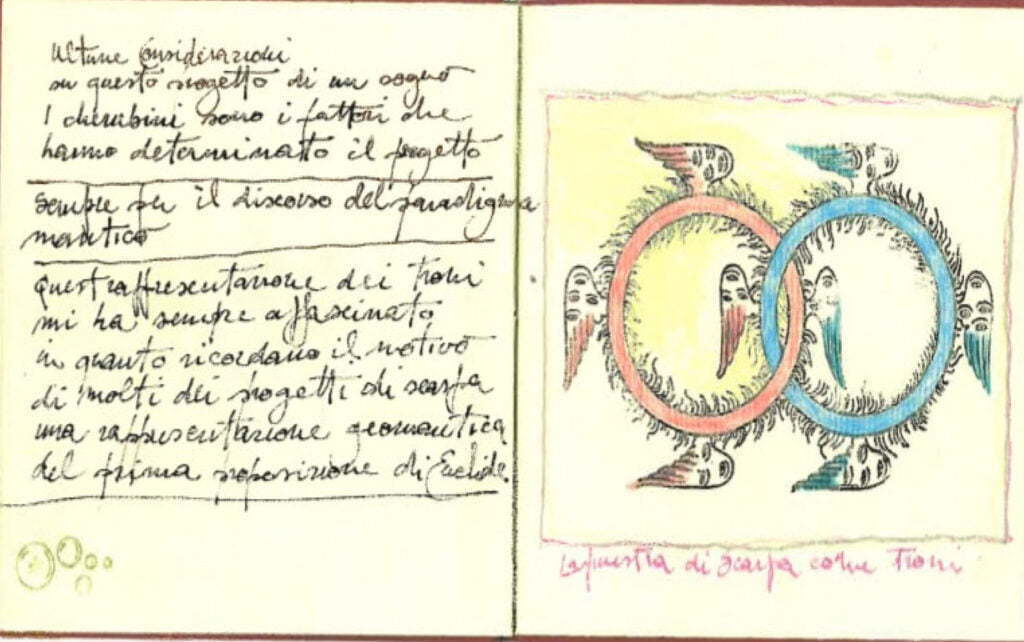 Ultime considerazioni
su questo progetto di un sogno
I cherubini sono i fattori che
hanno determinatto il progetto
sempre per il discorso del paradigma
mantico
Quest rappresentazione dei troni
mi ha sempre affascinato
in quanto ricordano il motivo
di molti dei progetti di scarpa
una rappresentazione geomantica
del prima proposizione di Euclide.
La finestra di Scarpa come Troni